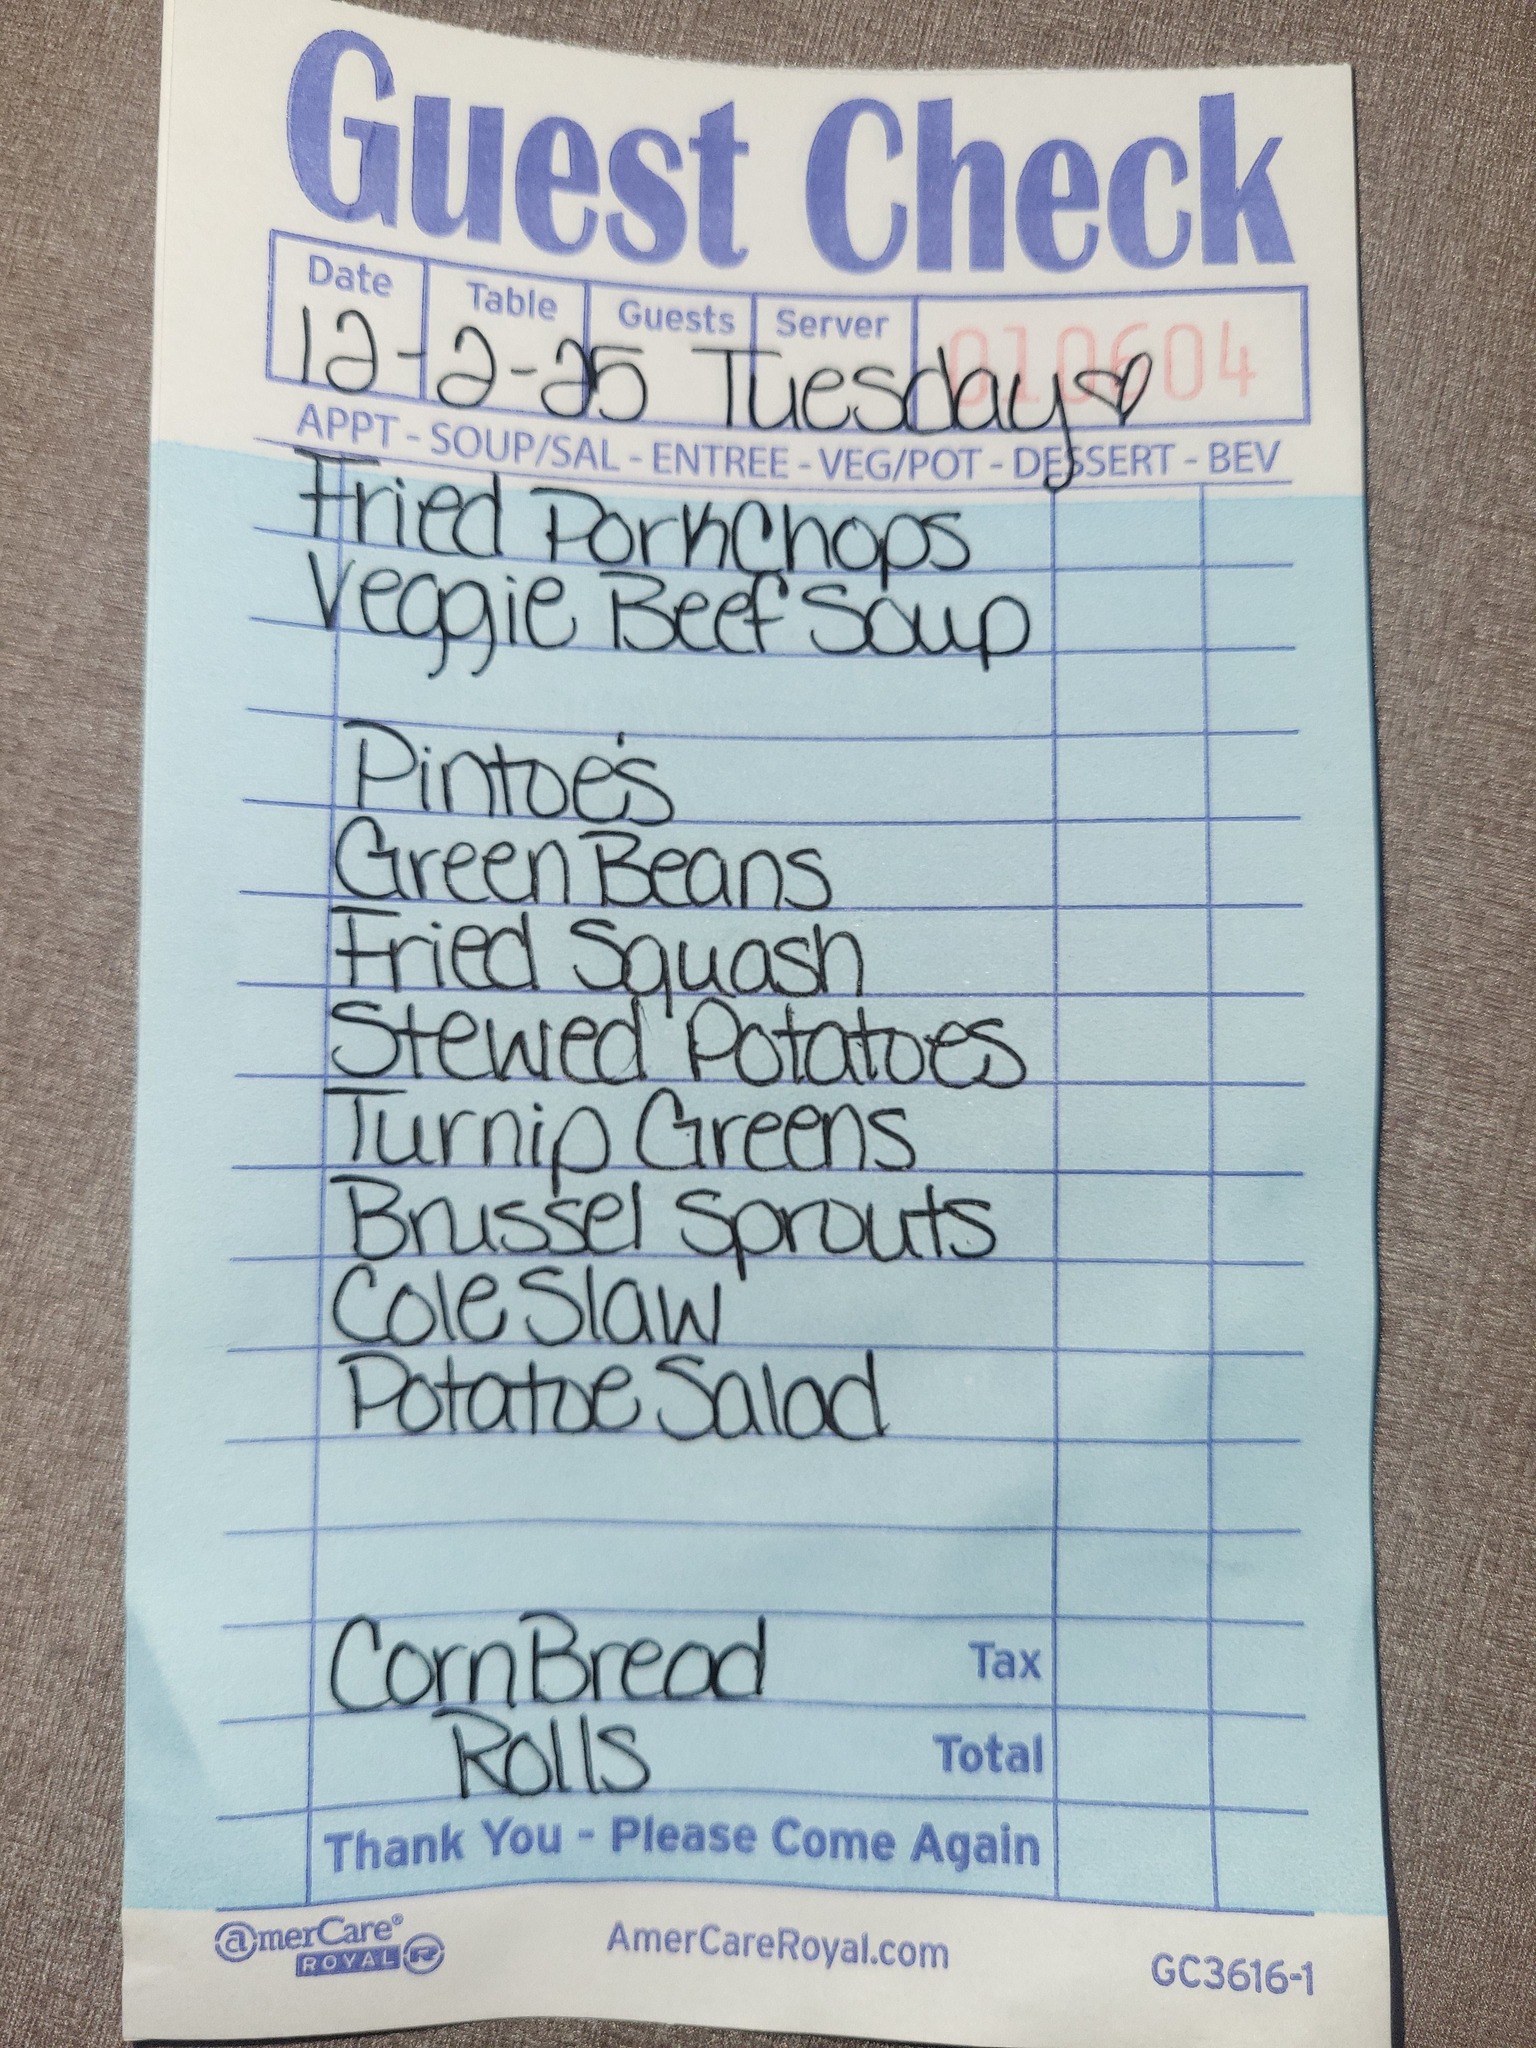 Guest Check
Date Table Guests Server
010604
12-2-25 Tuesday♡
APPT - SOUP/SAL - ENTREE - VEG/POT - DESSERT - BEV
Fried PorkChops
Veggie Beef Soup
Pintoe's
Green Beans
Fried Squash
Stewed Potatoes
Turnip Greens
Brussel Sprouts
Cole Slaw
Potatoe Salad
CornBread Tax
Rolls Total
Thank You - Please Come Again
amerCare®
ROYAL R
AmerCareRoyal.com
GC3616-1